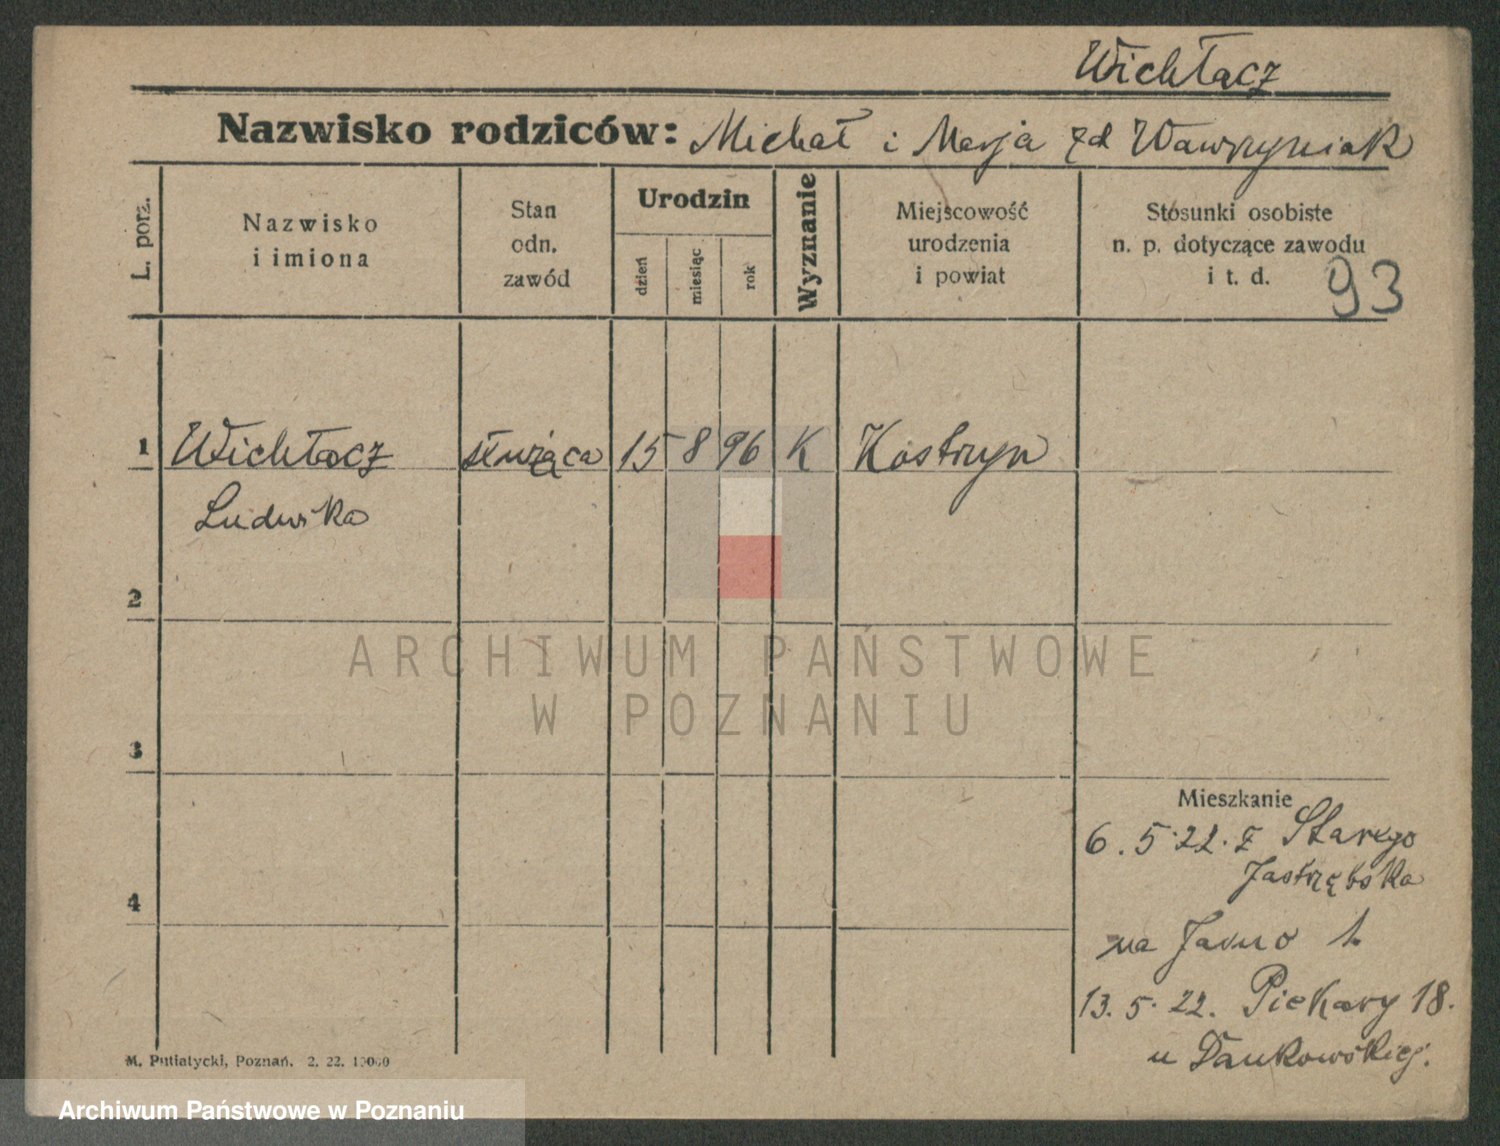 Wichłacz
Nazwisko rodziców: Michał i Marja zd Wawrzyniak
L. porz.
Nazwisko
i imiona
Stan
odn.
zawód
Urodzin
dzień
miesiąc
rok
Wyznanie
Miejscowość
urodzenia
i powiat
Stosunki osobiste
n. p. dotyczące zawodu
i t. d.
93
1 Wichłacz służąca 15 8 96 K Kostrzyn
Ludwika
2
ARCHIWUM PAŃSTWOWE
W POZNANIU
3
Mieszkanie
6. 5. 22. z Starego
Jastrzębska
4
na Jasno 1.
13. 5. 22. Piekary 18.
u Dankowskiej.
M. Putiatycki, Poznań. 2. 22. 10000
Archiwum Państwowe w Poznaniu